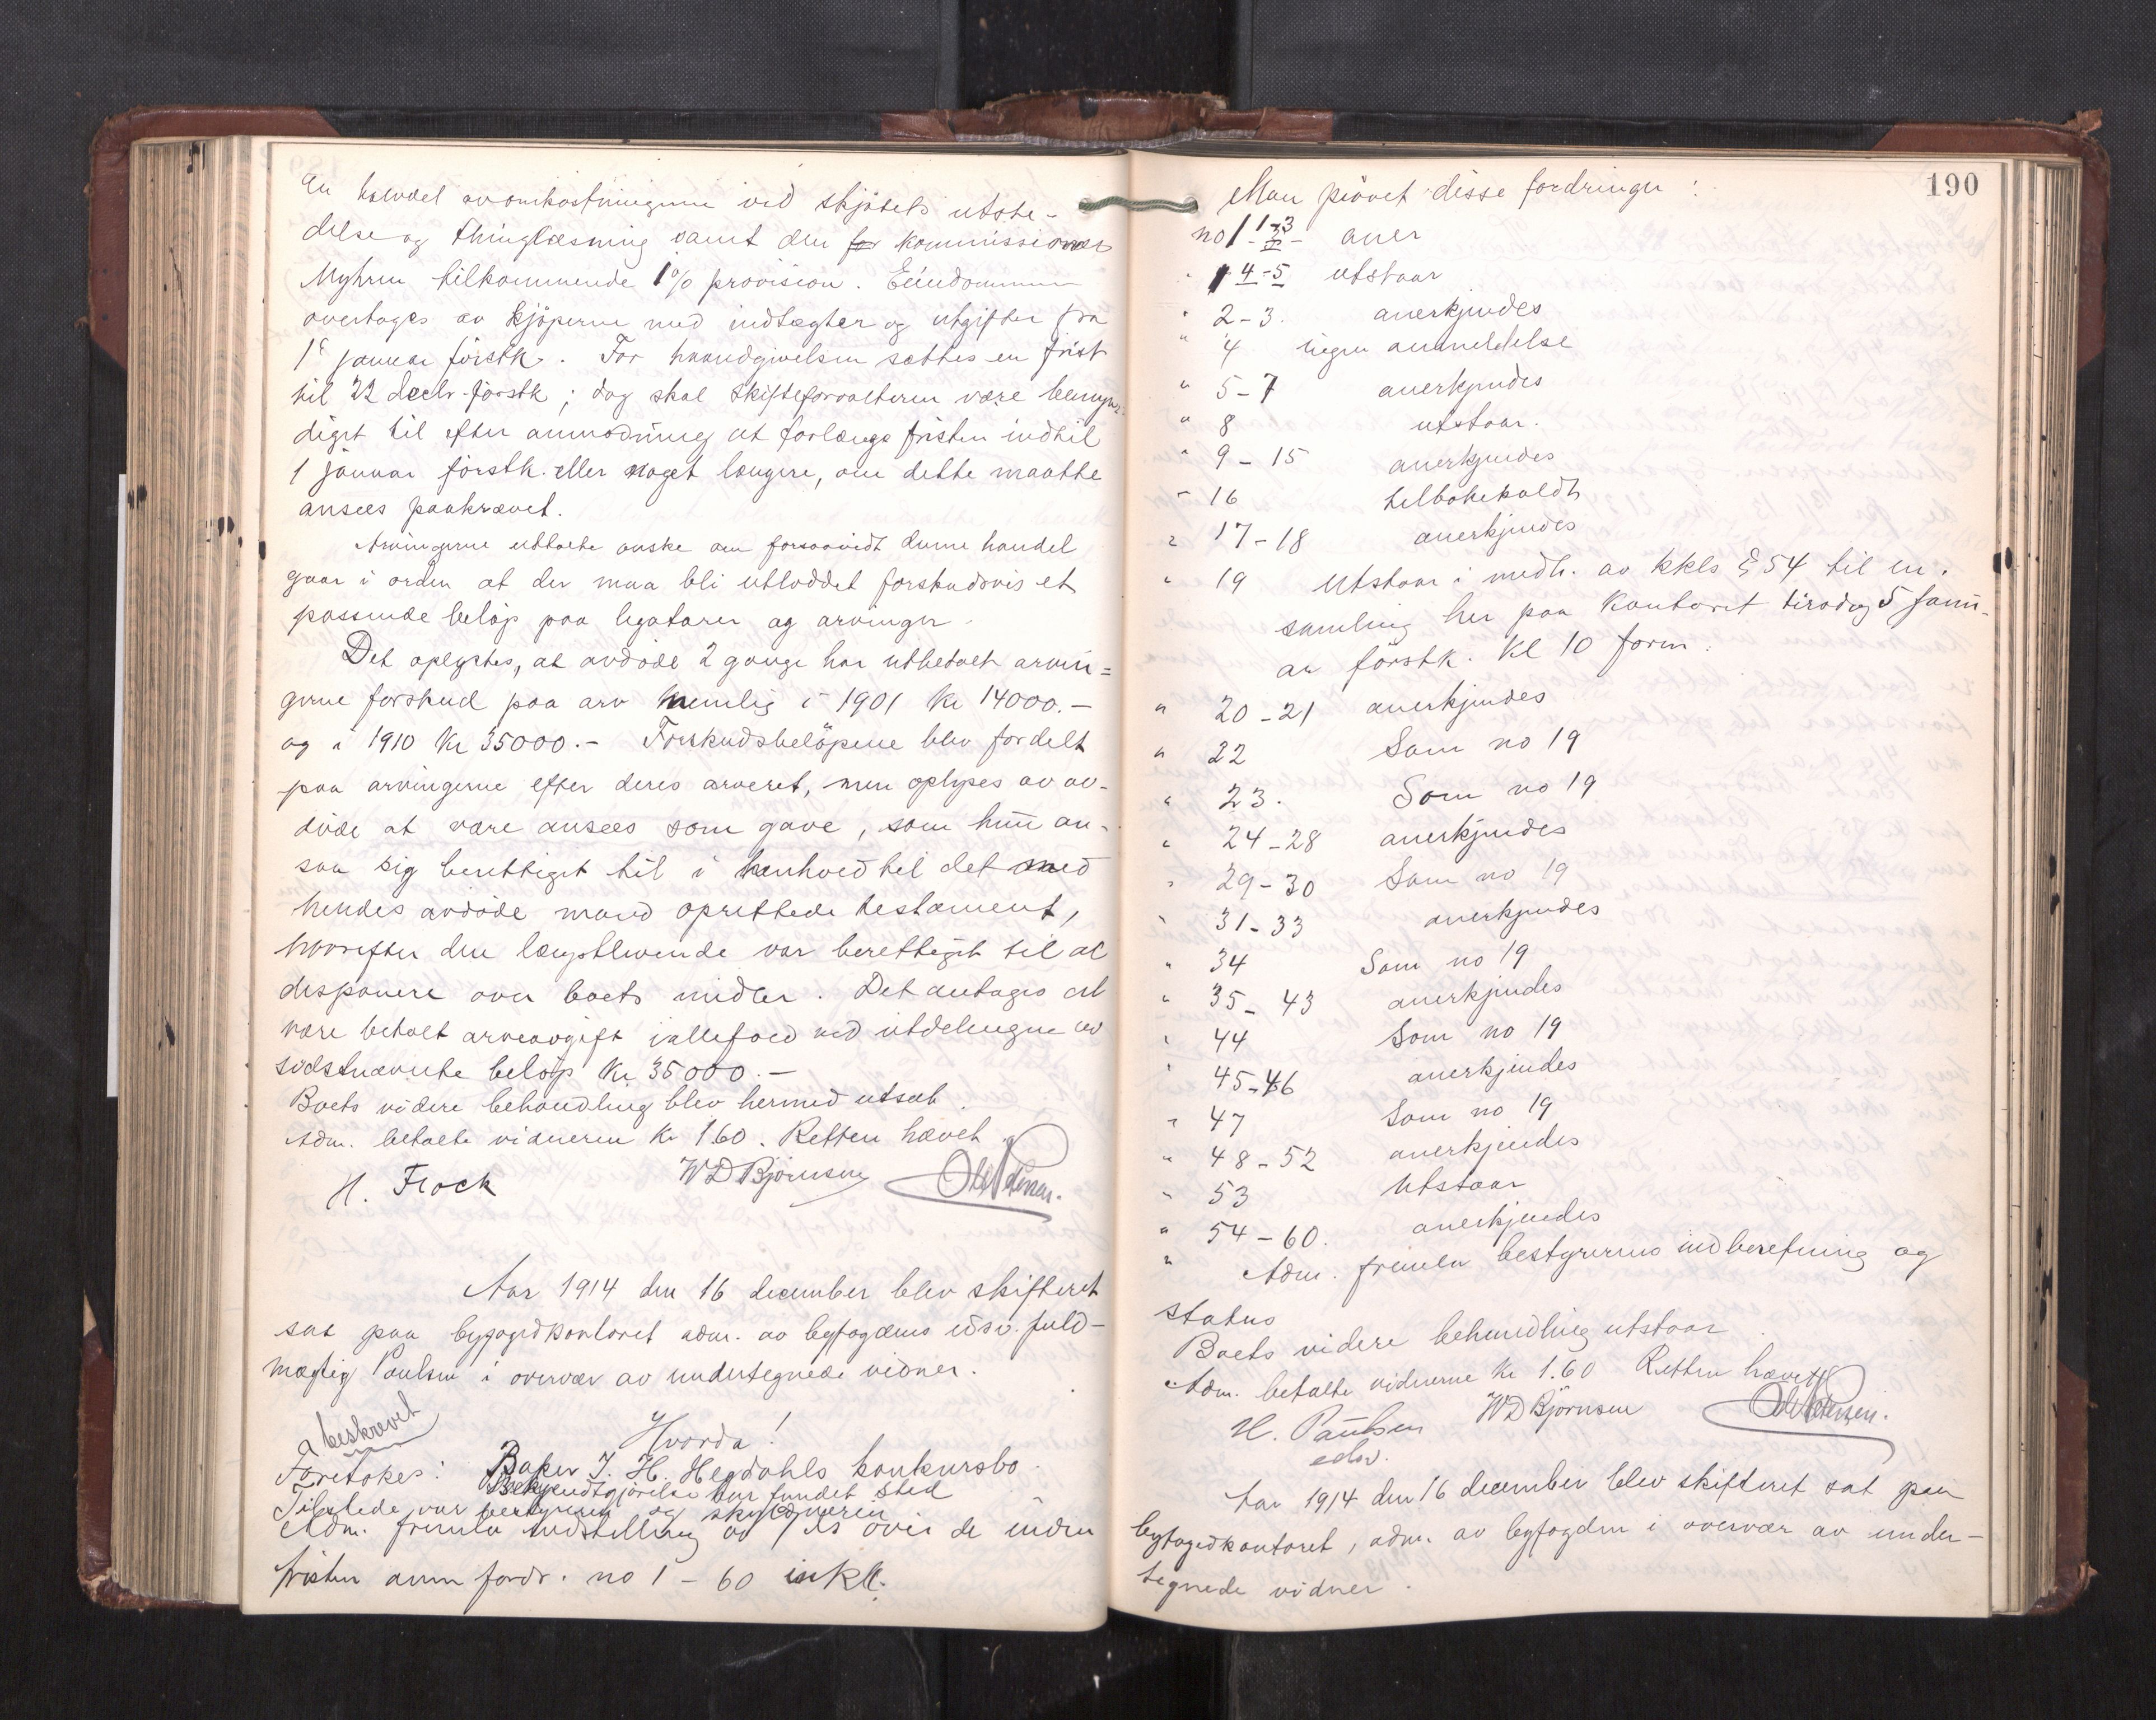 en halvdel av omkostningerne ved skjötets utste-
delse og thinglæsning samt den for kommissionær
Myhren tilkommende 1% provision. Eiendommen
overtages av kjöperne med indtægter og utgifter fra
1 januar förstk. For haandgivelsen sættes en frist
til 22 decbr förstk; dog skal skifteforvalteren være bemyn-
diget til efter anmodning at forlænge fristen indtil
1 januar förstk. eller noget længere, om dette maatte
ansees paakrævet.
Arvingerne uttalte önske om forsaavidt denne handel
gaar i orden at der maa bli utloddet forskudsvis et
passende belöp paa legatarer og arvinger.
Det oplystes, at avdöde 2 gange har utbetalt arvin=
gerne forskud paa arv nemlig i 1901 kr 14000.-
og i 1910 Kr 35000.- Forskudsbelöpene blev fordelt
paa arvingerne efter deres arveret, men oplyses av av-
döde at være ansees som gave, som hun an-
saa sig berettiget til i henhold til det med
hendes avdöde mand oprettede testament,
hvorefter den længstlevende var berettiget til at
disponere over boets midler. Det antages at
være betalt arveavgift iallefald ved utdelingen av
sidstnævnte belöp Kr 35000.-
Boets videre behandling blev hermed utsat.
Adm. betalte vidnerne Kr 1.60. Retten hævet.
H. Flock WD Björnsen
Aar 1914 den 16 december blev skifteret
sat paa byfogedkontoret adm. av byfogdens edsv. fuld-
mægtig Paulsen i overvær av undertegnede vidner.
beskrevet
Hvorda!
Foretokes: Baker J. H. Hegdahls konkursbo.
Bekjendtgjörelse har fundet sted
Tilstede var bestyreren og skyldneren
Adm. fremla indstilling av over de inden
fristen anm fordr. no 1 - 60 inkl.
190
Man prövet disse fordringer:
no 1 1-3 aner
" 1 4-5 utstaar
" 2-3. anerkjendes
" 4 ingen anmeldelse
" 5-7 anerkjendes
" 8 utstaar.
" 9-15 anerkjendes
" 16 tilbakekaldt
" 17-18 anerkjendes
" 19 Utstaar i medh. av kkls § 54 til en.
samling her paa kontoret tirsdag 5 janu-
ar förstk. Kl 10 form.
" 20-21 anerkjendes
" 22 Som no 19
" 23. Som no 19
" 24-28 anerkjendes
" 29-30 Som no 19
" 31-33 anerkjendes
" 34 Som no 19
" 35-43 anerkjendes
" 44 Som no 19
" 45-46 anerkjendes
" 47 Som no 19
" 48-52 anerkjendes
" 53 Utstaar
" 54-60. anerkjendes
" Adm. fremla bestyrerens indberetning og
status
Boets videre behandling utstaar.
Adm. betalte vidnerne Kr 1.60 Retten hævet
H. Paulsen WD Björnsen
edsv.
Aar 1914 den 16 december blev skifteret sat paa
byfogedkontoret, adm. av byfogden i overvær av under-
tegnede vidner.